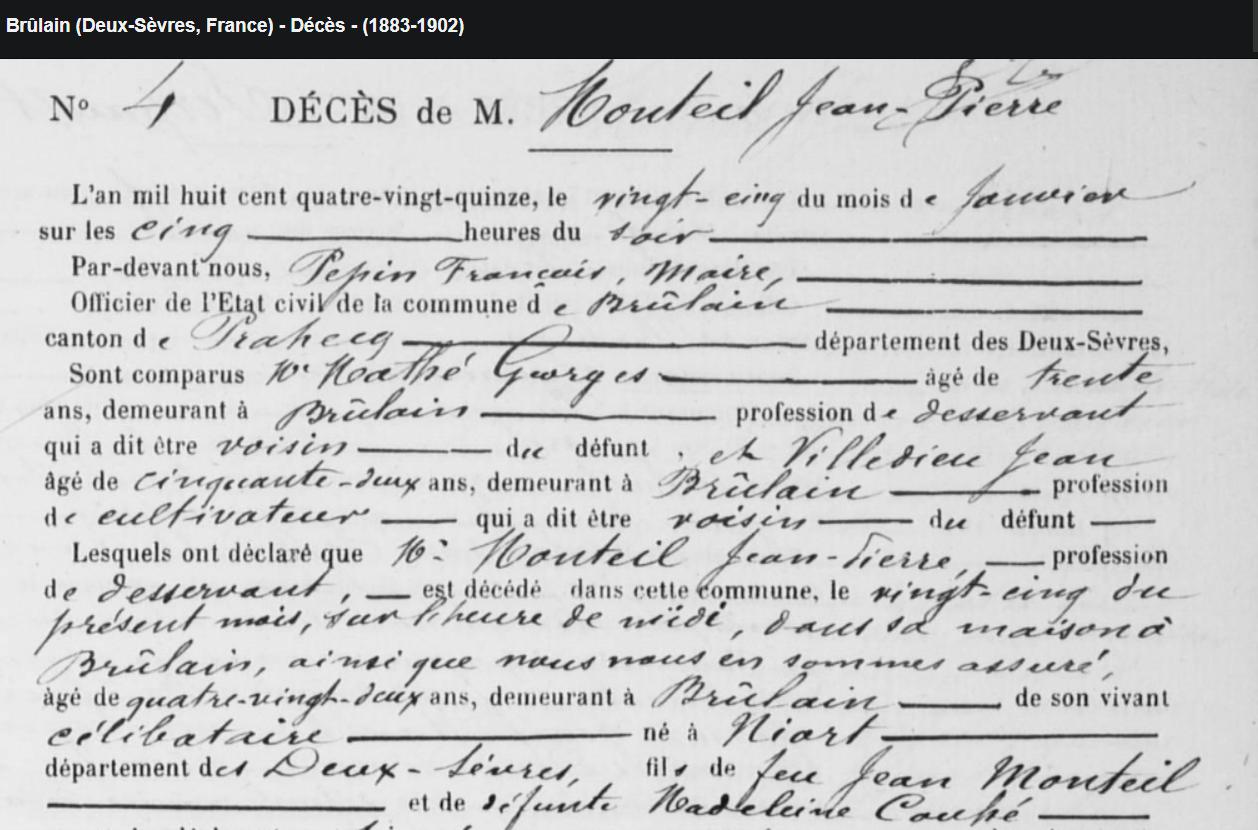 Brûlain (Deux-Sèvres, France) - Décès - (1883-1902)
N° 4 DÉCÈS de M. Monteil Jean-Pierre
L'an mil huit cent quatre-vingt-quinze, le vingt-cinq du mois de Janvier
sur les cinq heures du soir
Par-devant nous, Pepin François, Maire,
Officier de l'Etat civil de la commune de Brûlain
canton de Prahecq département des Deux-Sèvres,
Sont comparus Mr Mathé Georges âgé de trente
ans, demeurant à Brûlain profession de desservant
qui a dit être voisin du défunt, et Villedieu Jean
âgé de cinquante-deux ans, demeurant à Brûlain profession
de cultivateur qui a dit être voisin du défunt
Lesquels ont déclaré que Mr Monteil Jean-Pierre, profession
de desservant, est décédé dans cette commune, le vingt-cinq du
présent mois, sur l'heure de midi, dans sa maison à
Brûlain, ainsi que nous nous en sommes assuré,
âgé de quatre-vingt-deux ans, demeurant à Brûlain de son vivant
célibataire né à Niort
département des Deux-Sèvres, fils de feu Jean Monteil
et de défunte Madeleine